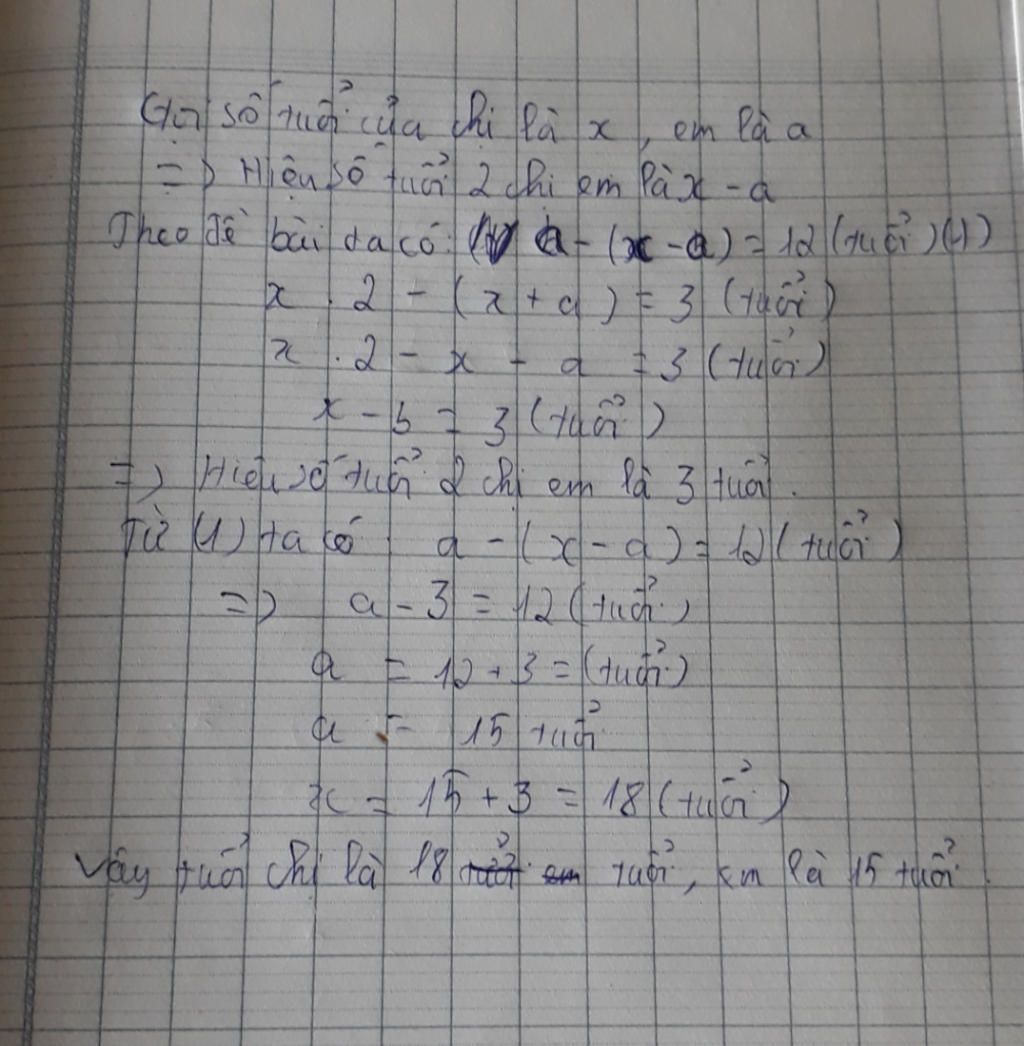 Gọi số tuổi của chị là x, em là a
=> Hiệu số tuổi 2 chị em là x - a
Theo đề bài ta có: a - (x - a) = 12 (tuổi) (1)
x . 2 - (x + a) = 3 (tuổi)
x . 2 - x - a = 3 (tuổi)
x - b = 3 (tuổi)
=> Hiệu số tuổi 2 chị em là 3 tuổi.
Từ (1) ta có a - (x - a) = 12 (tuổi)
=> a - 3 = 12 (tuổi)
a = 12 + 3 = (tuổi)
a = 15 tuổi
x = 15 + 3 = 18 (tuổi)
Vậy tuổi chị là 18 tuổi, em là 15 tuổi.